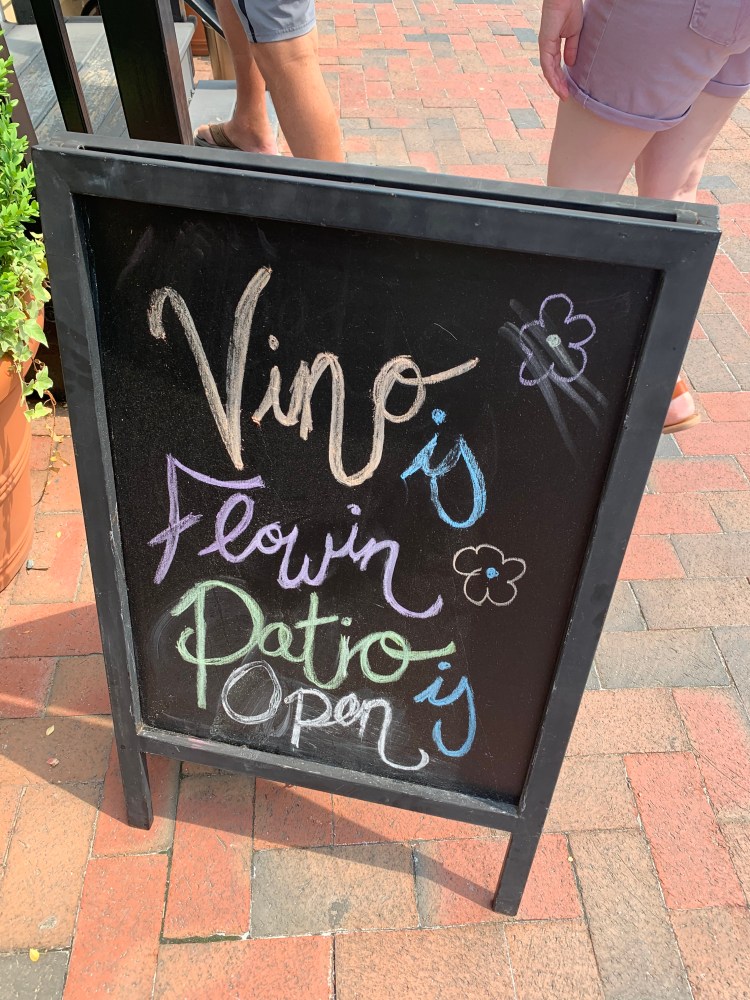 Vino
is
Flowin
Patio
is
Open